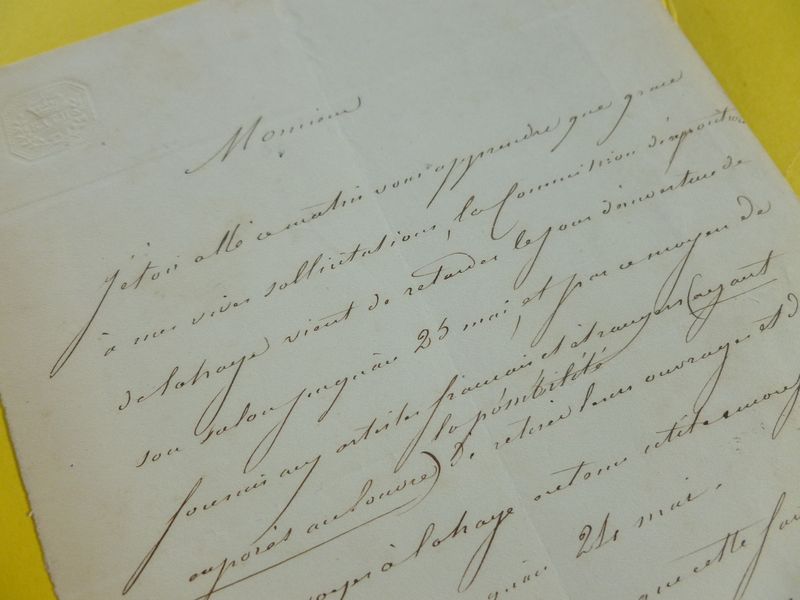 Monsieur
J'étois allé ce matin vous apprendre que grace
à mes vives sollicitations, la Commission d'exposition
de lahaye vient de retarder le jour d'ouverture de
son salon jusqu'au 25 mai, et par ce moyen de
fournir aux artistes français et étrangers (ayant
la possibilité
exposés au louvre) de retirer leurs ouvrages et d
à lahaye
qu'au 24 mai.
que cette